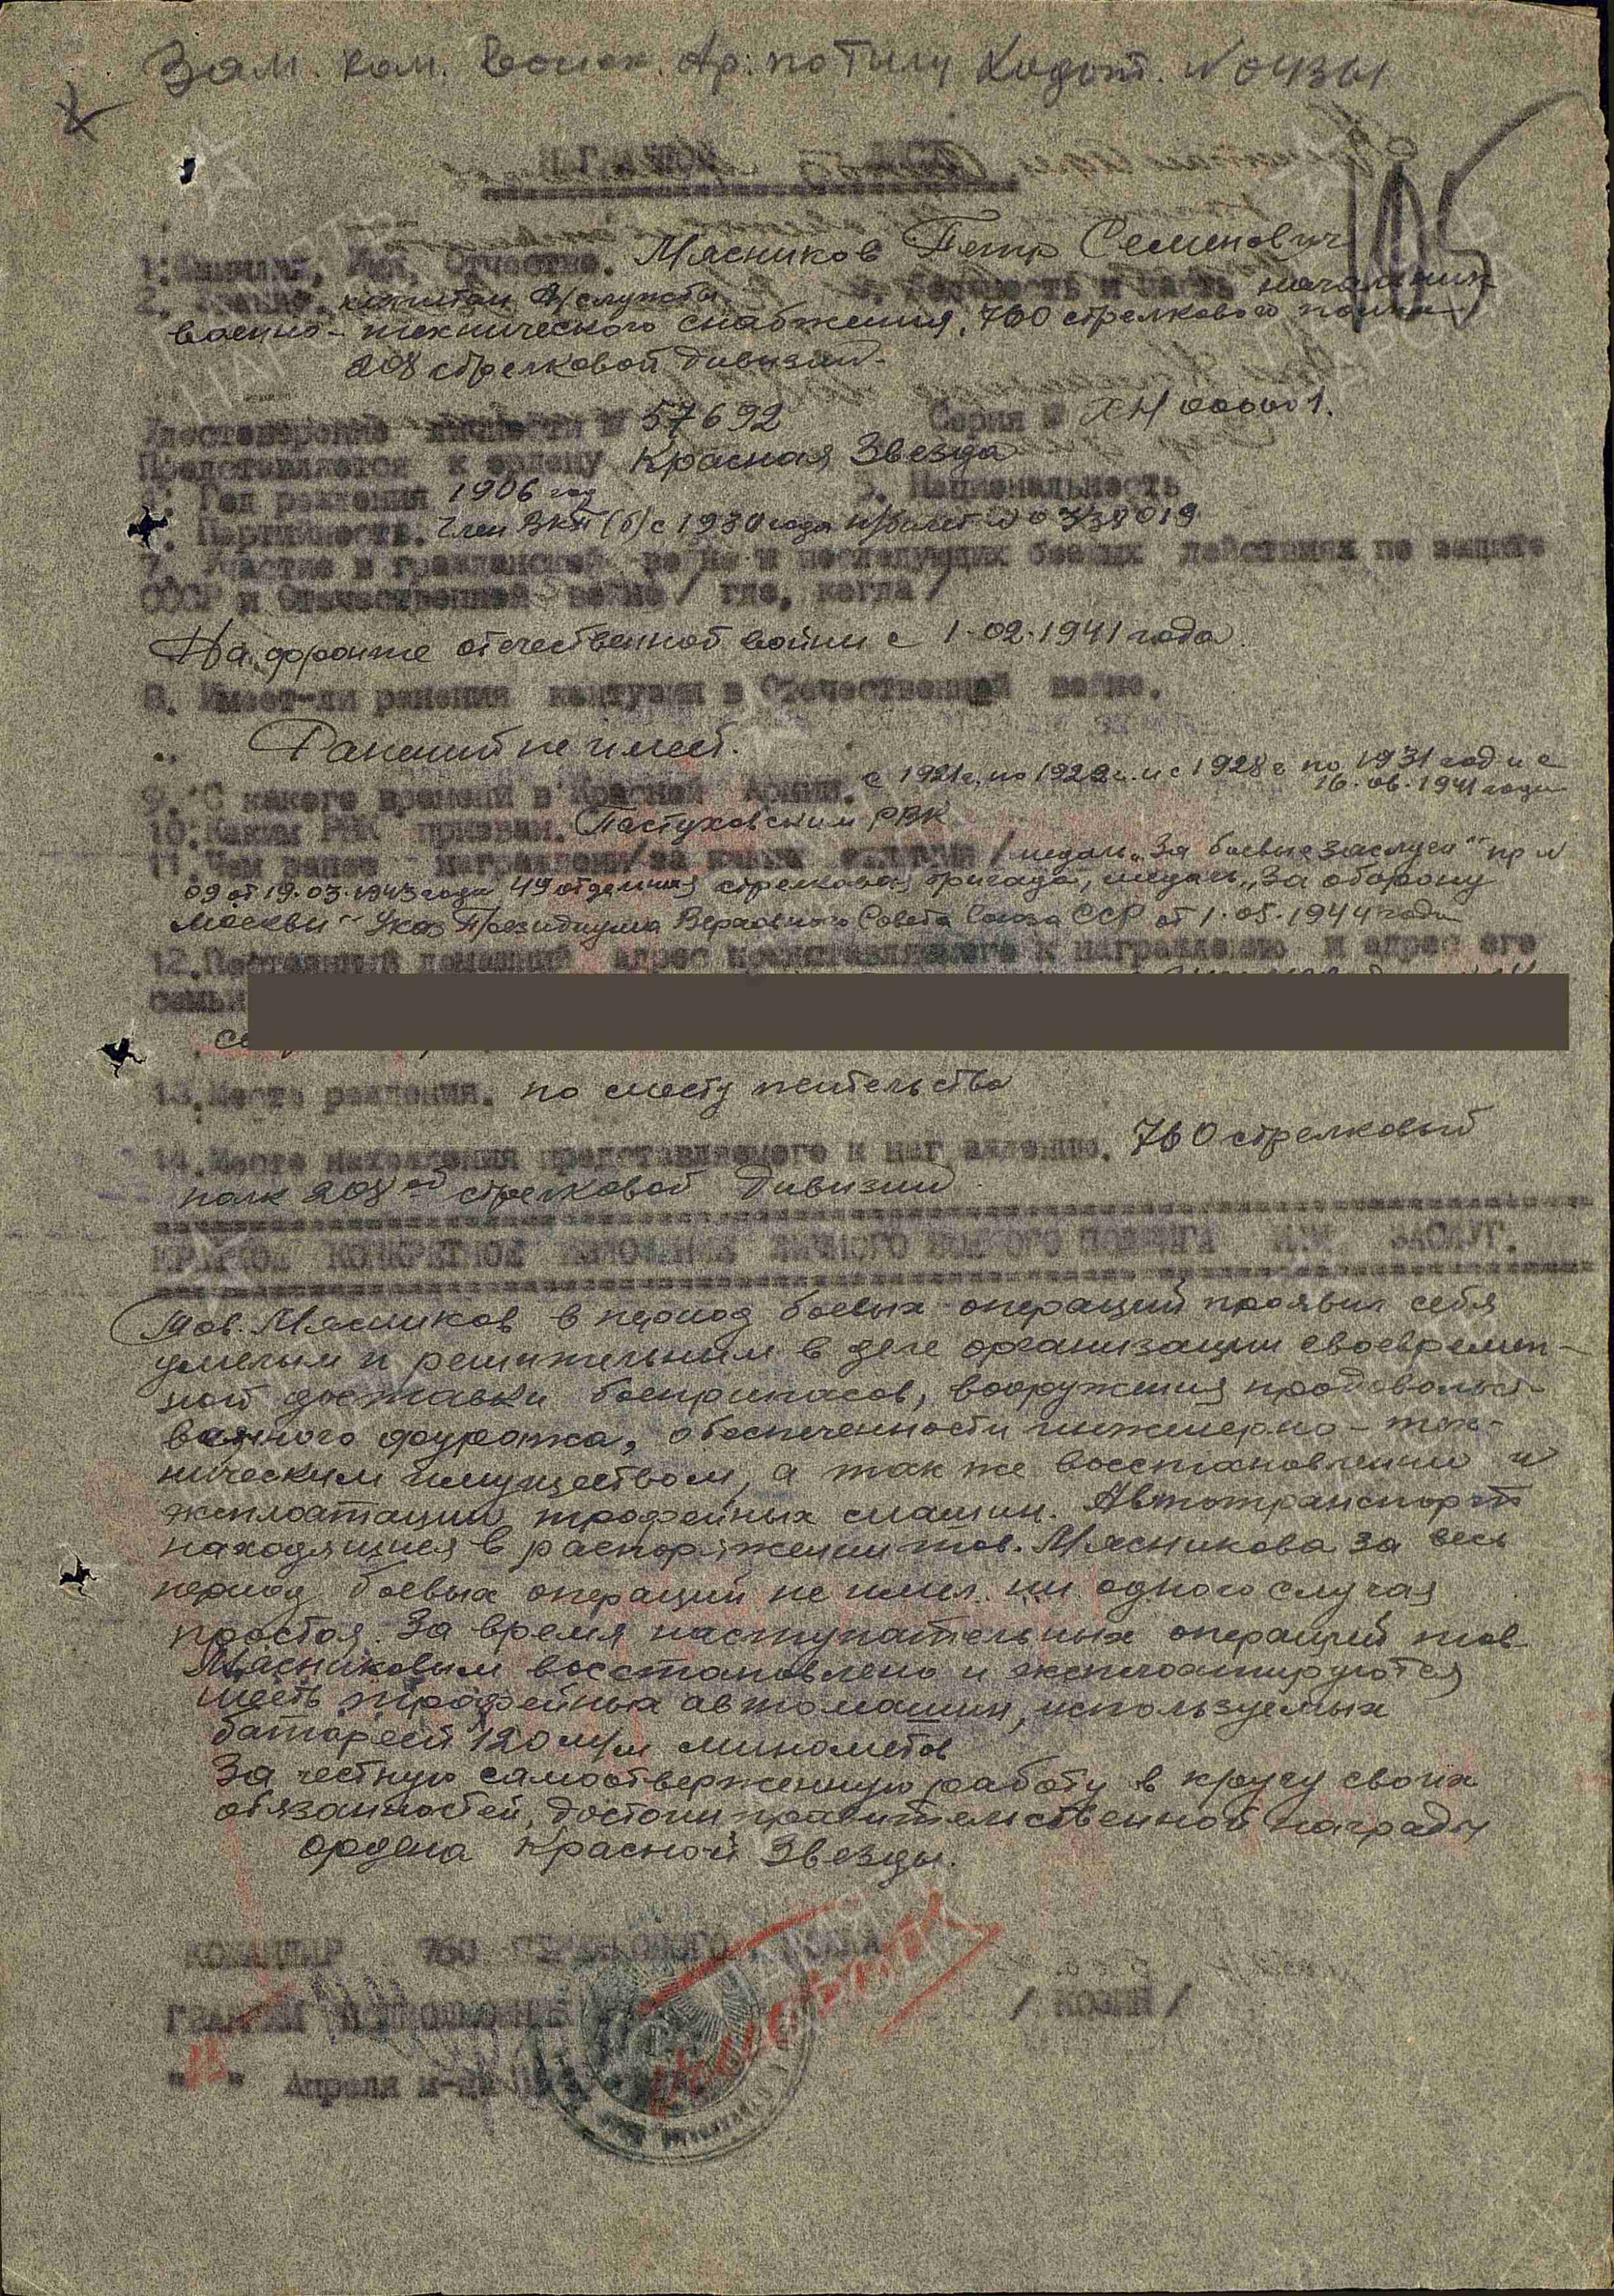 Зам. ком. по тылу
105
1. Фамилия, Имя, Отчество. Мясников Петр Семенович
2. Звание. капитан а/службы 3. Должность и часть начальник
военно-технического снабжения, 760 стрелкового полка
208 стрелковой дивизии.
Удостоверение личности № 57692 Серия № ХН
Представляется к ордену Красная Звезда
4. Год рождения 1906 год 5. Национальность
6. Партийность. Член ВКП(б) с года п/билет №
7. Участие в гражданской войне и последующих боевых действиях по защите
СССР и Отечественной войне / где, когда /
На фронте отечественной войны с 1.02.1941 года.
8. Имеет-ли ранения контузии в Отечественной войне.
Ранений не имеет.
с 1921 г. по г. и с 1928 г по 1931 год и с
9. С какого времени в Красной Армии. 16.06.1941 года
10. Каким РВК призван. Пастуховским РВК
11. Чем ранее награжден /за какие отличия/ медаль „За боевые заслуги" пр №
09 от 19.03.1943 года 49 отдельная стрелковая бригада, медаль „За оборону
Москвы" Указ Президиума Верховного Совета Союза ССР от 1.05.1944 года
12. Постоянный домашний адрес представляемого к награждению и адрес его
семьи
13. Место рождения. по месту жительства
14. Место нахождения представляемого к награждению. 760 стрелковый
полк 208ой стрелковой дивизии.
КРАТКОЕ КОНКРЕТНОЕ ИЗЛОЖЕНИЕ ЛИЧНОГО БОЕВОГО ПОДВИГА ИЛИ ЗАСЛУГ.
Тов. Мясников в период боевых операций проявил себя
умелым и решительным в деле организации своевремен-
ной доставки боеприпасов, вооружения продовольст-
венного фуража, обеспеченности инженерно-тех-
ническим имуществом, а так же восстановлении и
эксплоатации трофейных машин. Автотранспорт
находящийся в распоряжении тов. Мясникова за весь
период боевых операций не имел ни одного случая
простоя. За время наступательных операций тов.
Мясниковым восстановлено и эксплоатируются
шесть трофейных автомашин, используемых
батареей 120 м/м минометов
За честную самоотверженную работу в кругу своих
обязанностей, достоин правительственной награды
ордена Красной Звезды.
КОМАНДИР 760 СТРЕЛКОВОГО ПОЛКА
ГВАРДИИ ПОДПОЛКОВНИК / КОЗИН /
" " Апреля м-ца